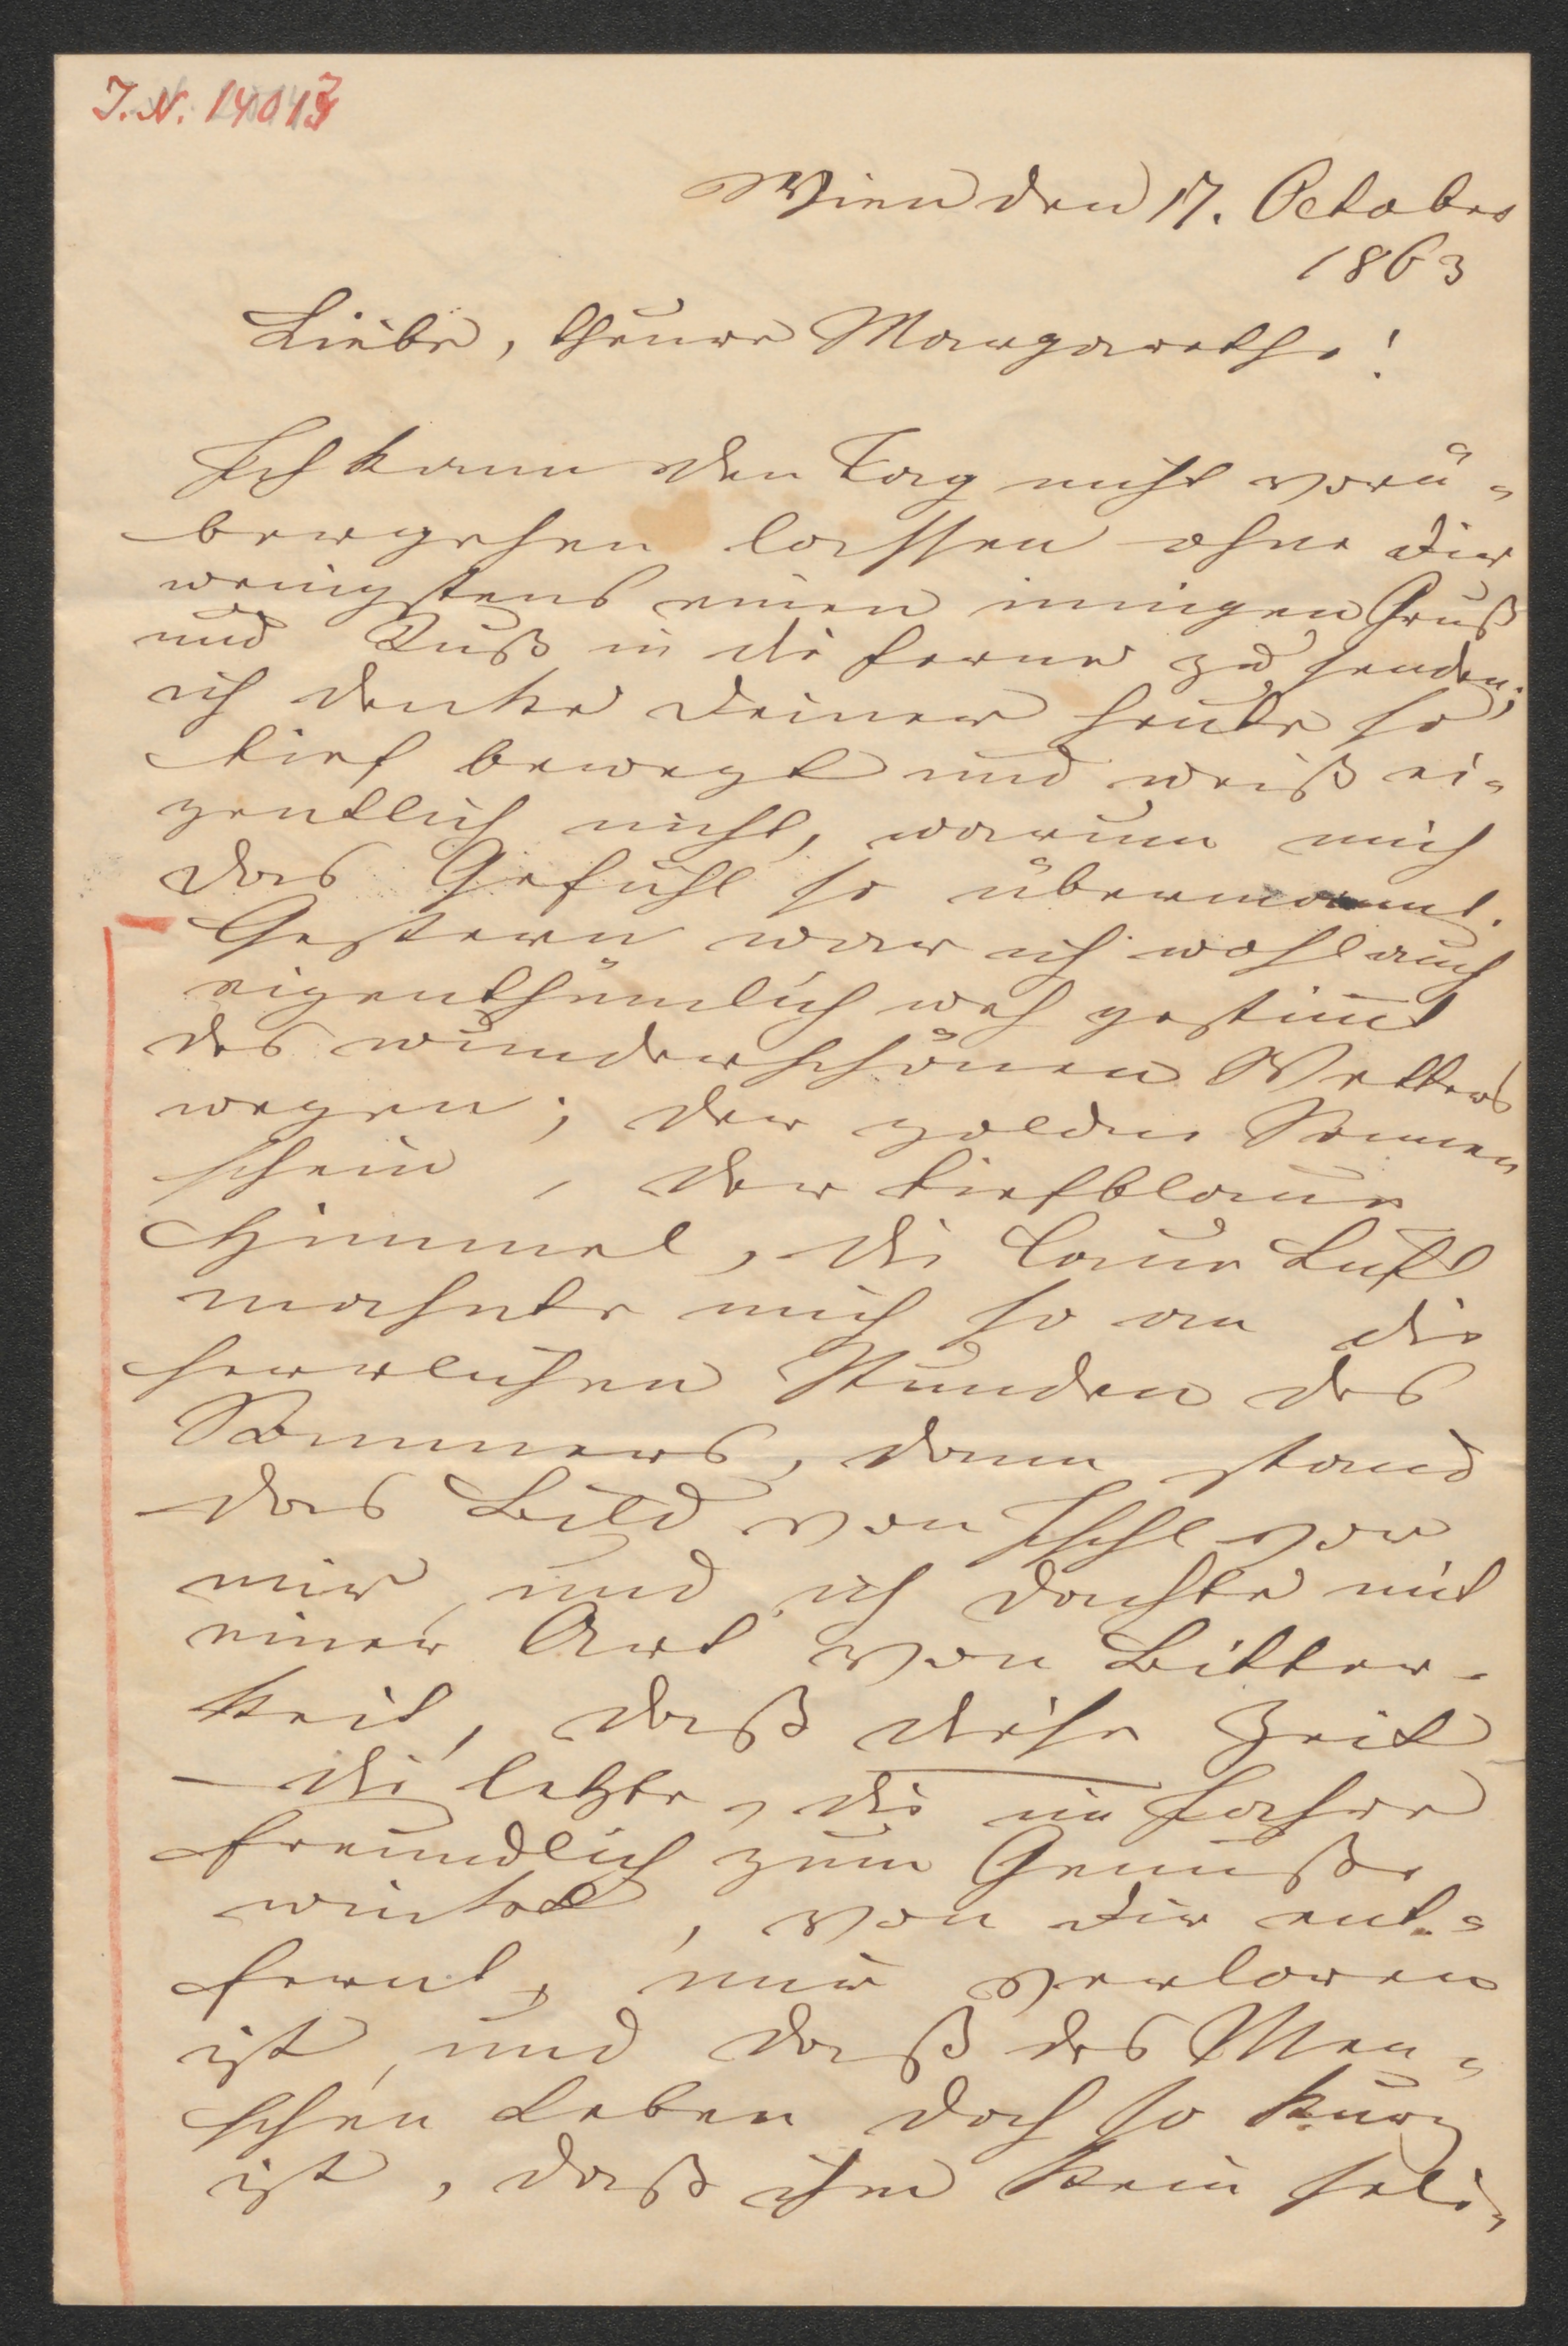 J. N. 14043
Wien den 17. October
1863
Liebe, theure Margarethe!
Ich kann den Tag nicht vorü-
bergehen lassen ohne Dir
wenigstens einen innigen Gruß
und Kuß in die Ferne zu senden;
ich denke Deiner heute so
tief bewegt und weiß ei-
gentlich nicht, warum mich
das Gefühl so übermannt.
Gestern war ich wohl auch
eigenthümlich weh gestimt
des wunderschönen Wetters
wegen; der goldne Sonnen-
schein, der tiefblaue
Himmel, die laue Luft
mahnte mich so an die
herrlichen Stunden des
Sommers, dann stand
das Bild von Ischl vor
mir und ich dachte mit
einer Art von Bitter-
keit, daß diese Zeit
– die letzte, die im Jahre
freundlich zum Genuße
winkt, von Dir ent-
fernt, mir verloren
ist, und daß des Men-
schen Leben doch so kurz
ist, daß ihm kein seli-